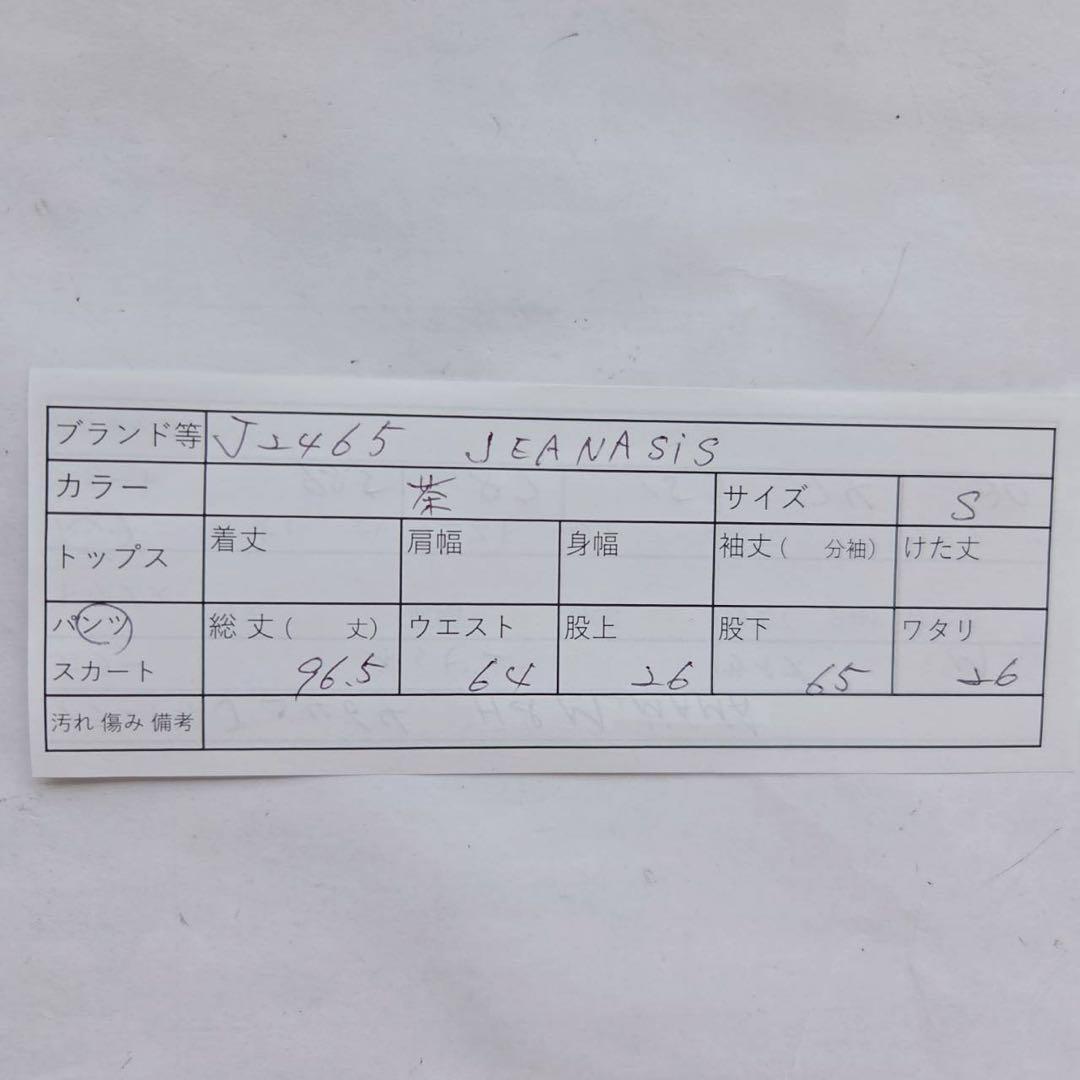 ブランド等 J2465 JEANASiS
カラー 茶 サイズ S
トップス 着丈 肩幅 身幅 袖丈( 分袖) けた丈
パンツ 総丈( 丈) ウエスト 股上 股下 ワタリ
スカート 96.5 64 26 65 26
汚れ 傷み 備考